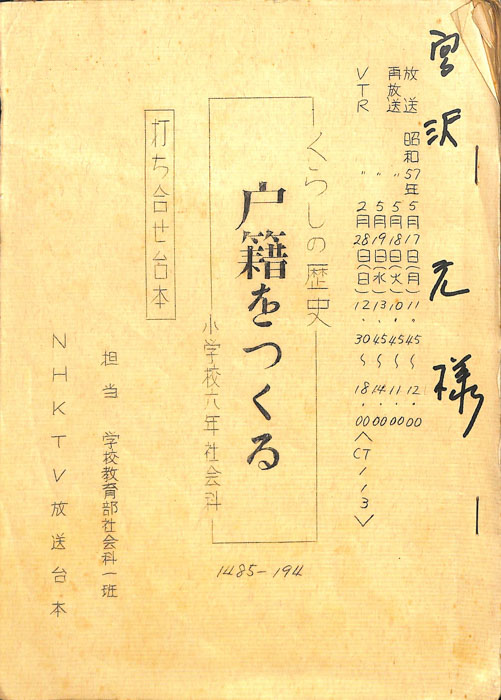 宮沢 元 様
放送 昭和57年5月17日(月) 11・45〜12・00
再放送 〃 5月18日(火) 10・45〜11・00
〃 5月19日(水) 13・45〜14・00
VTR 〃 2月28日(日) 12・30〜18・00〈CT113〉
くらしの歴史
戸籍をつくる
小学校六年社会科
1485-194
打ち合せ台本
担当 学校教育部社会科一班
NHKTV放送台本